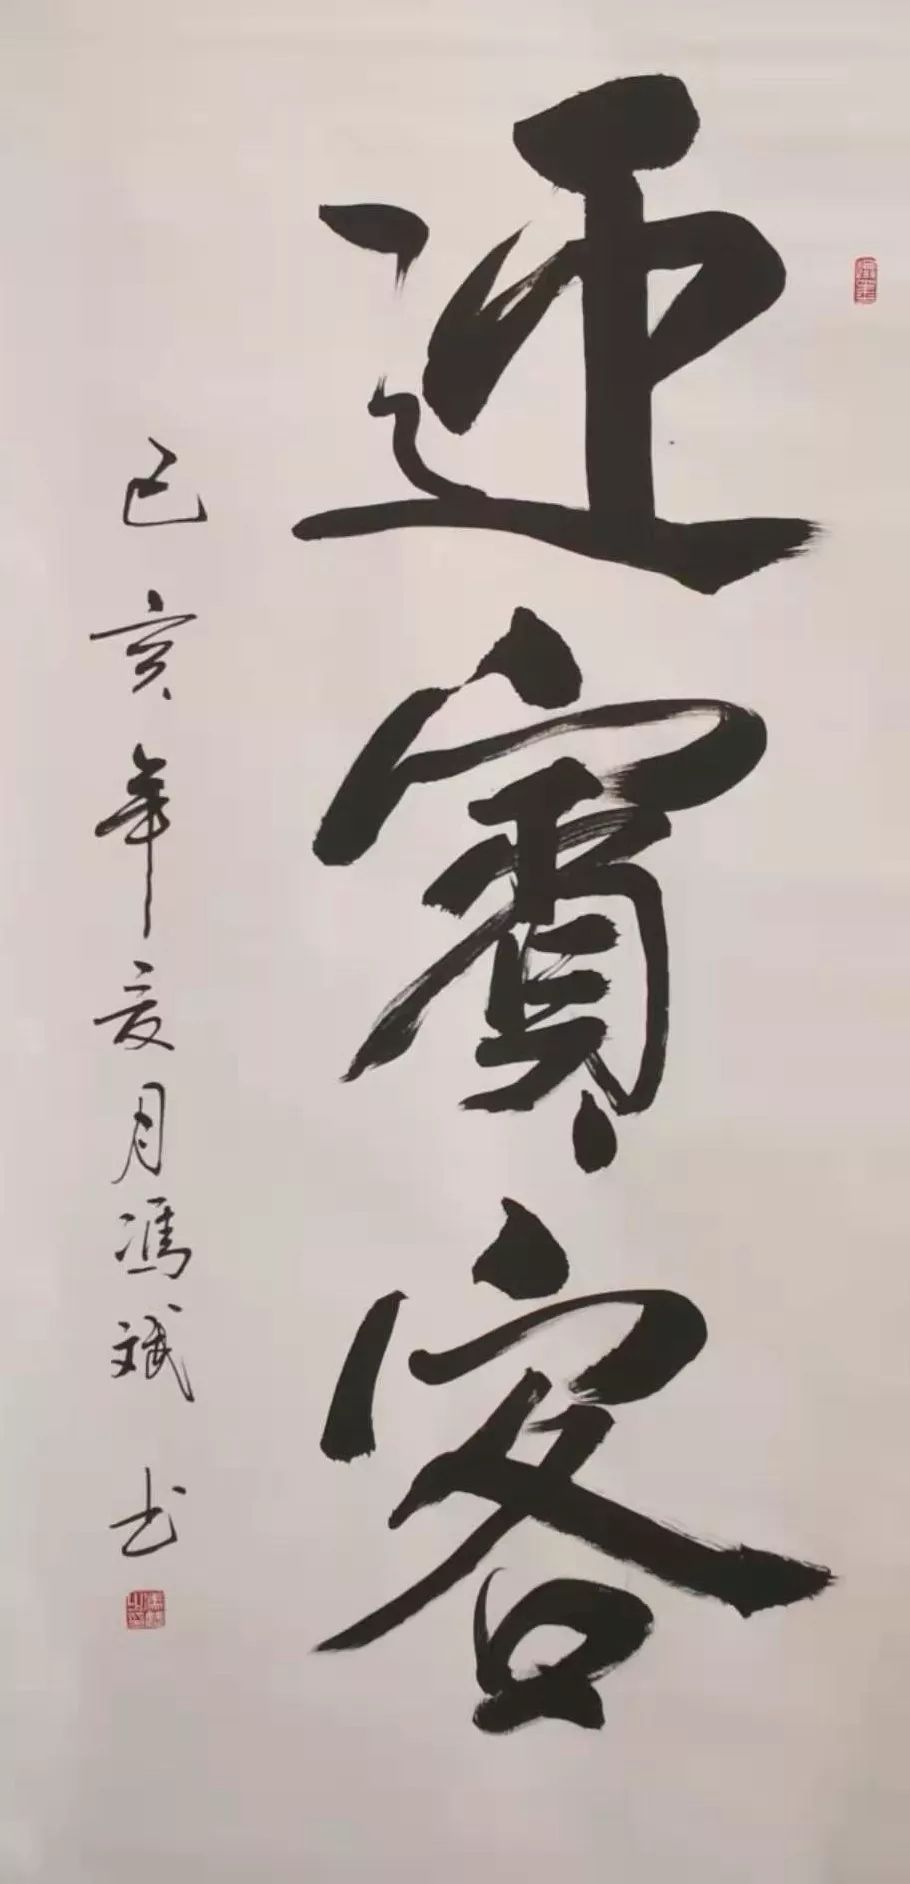 迎賓客
己亥年夏月馮斌书